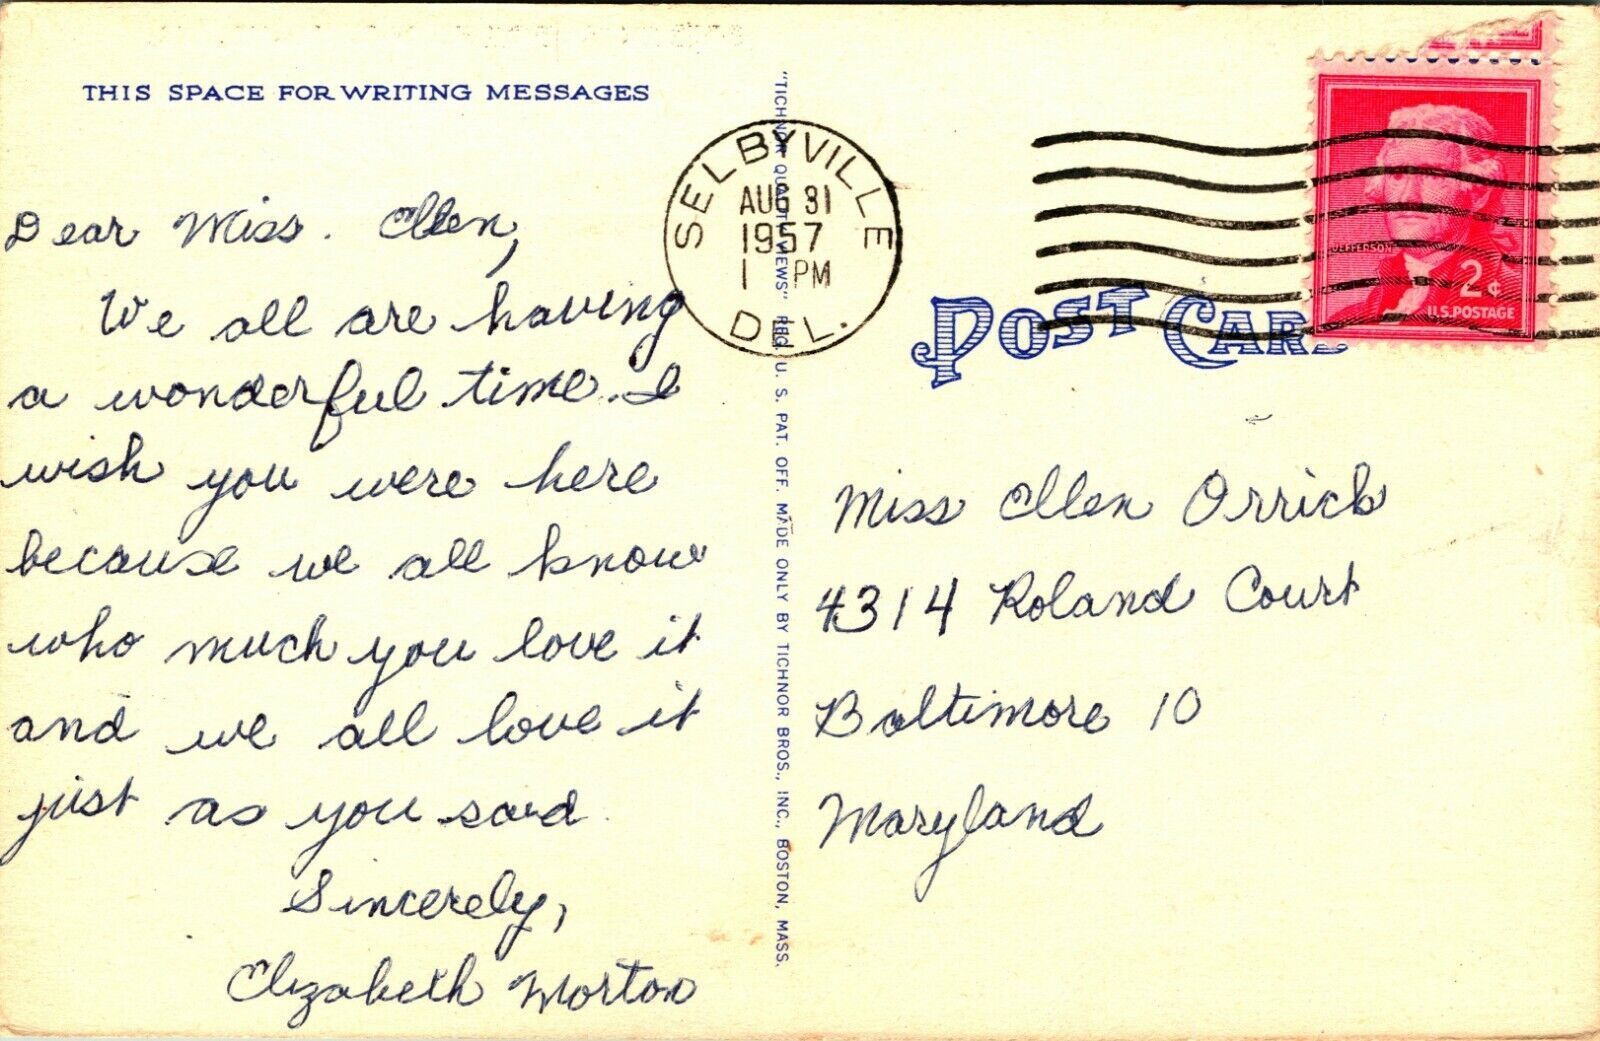 THIS SPACE FOR WRITING MESSAGES
Dear Miss. Ellen,
We all are having
a wonderful time. I
wish you were here
because we all know
who much you love it
and we all love it
just as you said
Sincerely,
Elizabeth Morton
"TICHNOR QUALITY VIEWS" REG. U. S. PAT. OFF. MADE ONLY BY TICHNOR BROS., INC., BOSTON, MASS.
SELBYVILLE
AUG 31
1957
1 PM
DEL.
POST CARD
JEFFERSON
2¢
U.S. POSTAGE
Miss Ellen Orrick
4314 Roland Court
Baltimore 10
Maryland